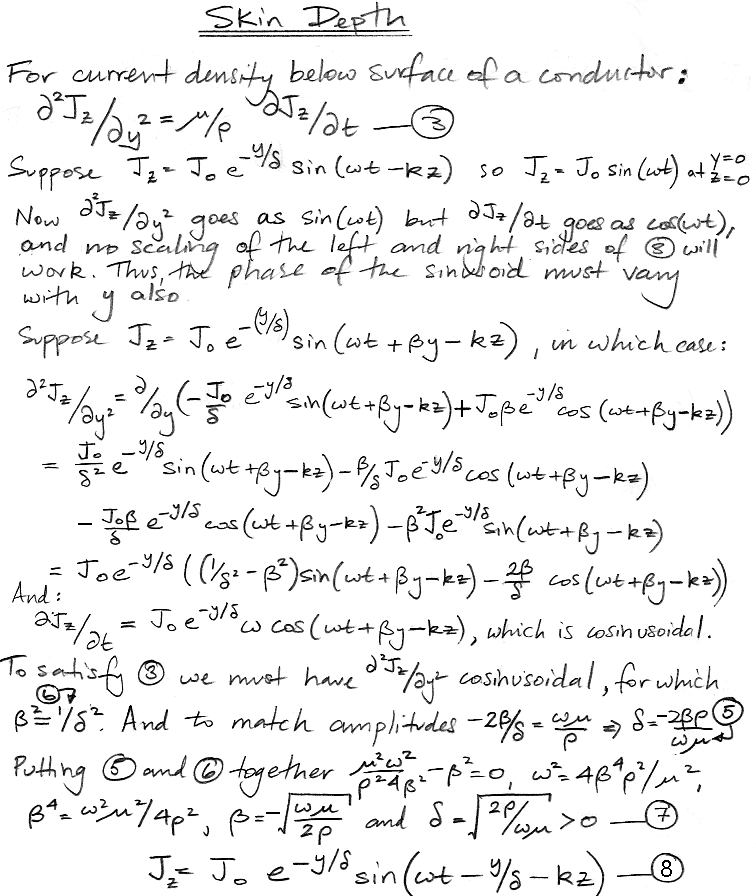 Skin Depth
For current density below surface of a conductor:
∂²J_z/∂y² = μ/ρ ∂J_z/∂t — ③
Suppose J_z = J_0 e^{-y/δ} sin(ωt - kz) so J_z = J_0 sin(ωt) at y=0 z=0
Now ∂²J_z/∂y² goes as sin(ωt) but ∂J_z/∂t goes as cos(ωt),
and no scaling of the left and right sides of ③ will
work. Thus, the phase of the sinusoid must vary
with y also
Suppose J_z = J_0 e^{-(y/δ)} sin(ωt + βy - kz), in which case:
∂²J_z/∂y² = ∂/∂y(-J_0/δ e^{-y/δ} sin(ωt+βy-kz) + J_0βe^{-y/δ} cos(ωt+βy-kz))
= J_0/δ² e^{-y/δ} sin(ωt+βy-kz) - β/δ J_0 e^{-y/δ} cos(ωt+βy-kz)
- J_0β/δ e^{-y/δ} cos(ωt+βy-kz) - β²J_0e^{-y/δ} sin(ωt+βy-kz)
= J_0e^{-y/δ} ((1/δ² - β²)sin(ωt+βy-kz) - 2β/δ cos(ωt+βy-kz))
And:
∂J_z/∂t = J_0 e^{-y/δ} ω cos(ωt+βy-kz), which is cosinusoidal.
To satisfy ③ we must have ∂²J_z/∂y² cosinusoidal, for which
β² = 1/δ². And to match amplitudes -2β/δ = ωμ/ρ ⇒ δ = -2βρ/ωμ ⑤
Putting ⑤ and ⑥ together μ²ω²/ρ²4β² - β² = 0, ω² = 4β⁴ρ²/μ²,
β⁴ = ω²μ²/4ρ², β = -√(ωμ/2ρ) and δ = √(2ρ/ωμ) > 0 — ⑦
J_z = J_0 e^{-y/δ} sin(ωt - y/δ - kz) — ⑧